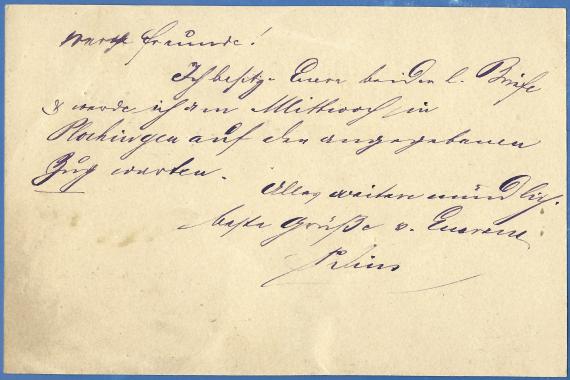 Werthe Freunde!
Ich besitze Euere beiden l. Briefe
& werde ich am Mittwoch in
Plochingen auf den angegebenen
Zug warten.
Alles weitere mündlich.
beste Grüße v. Eurem